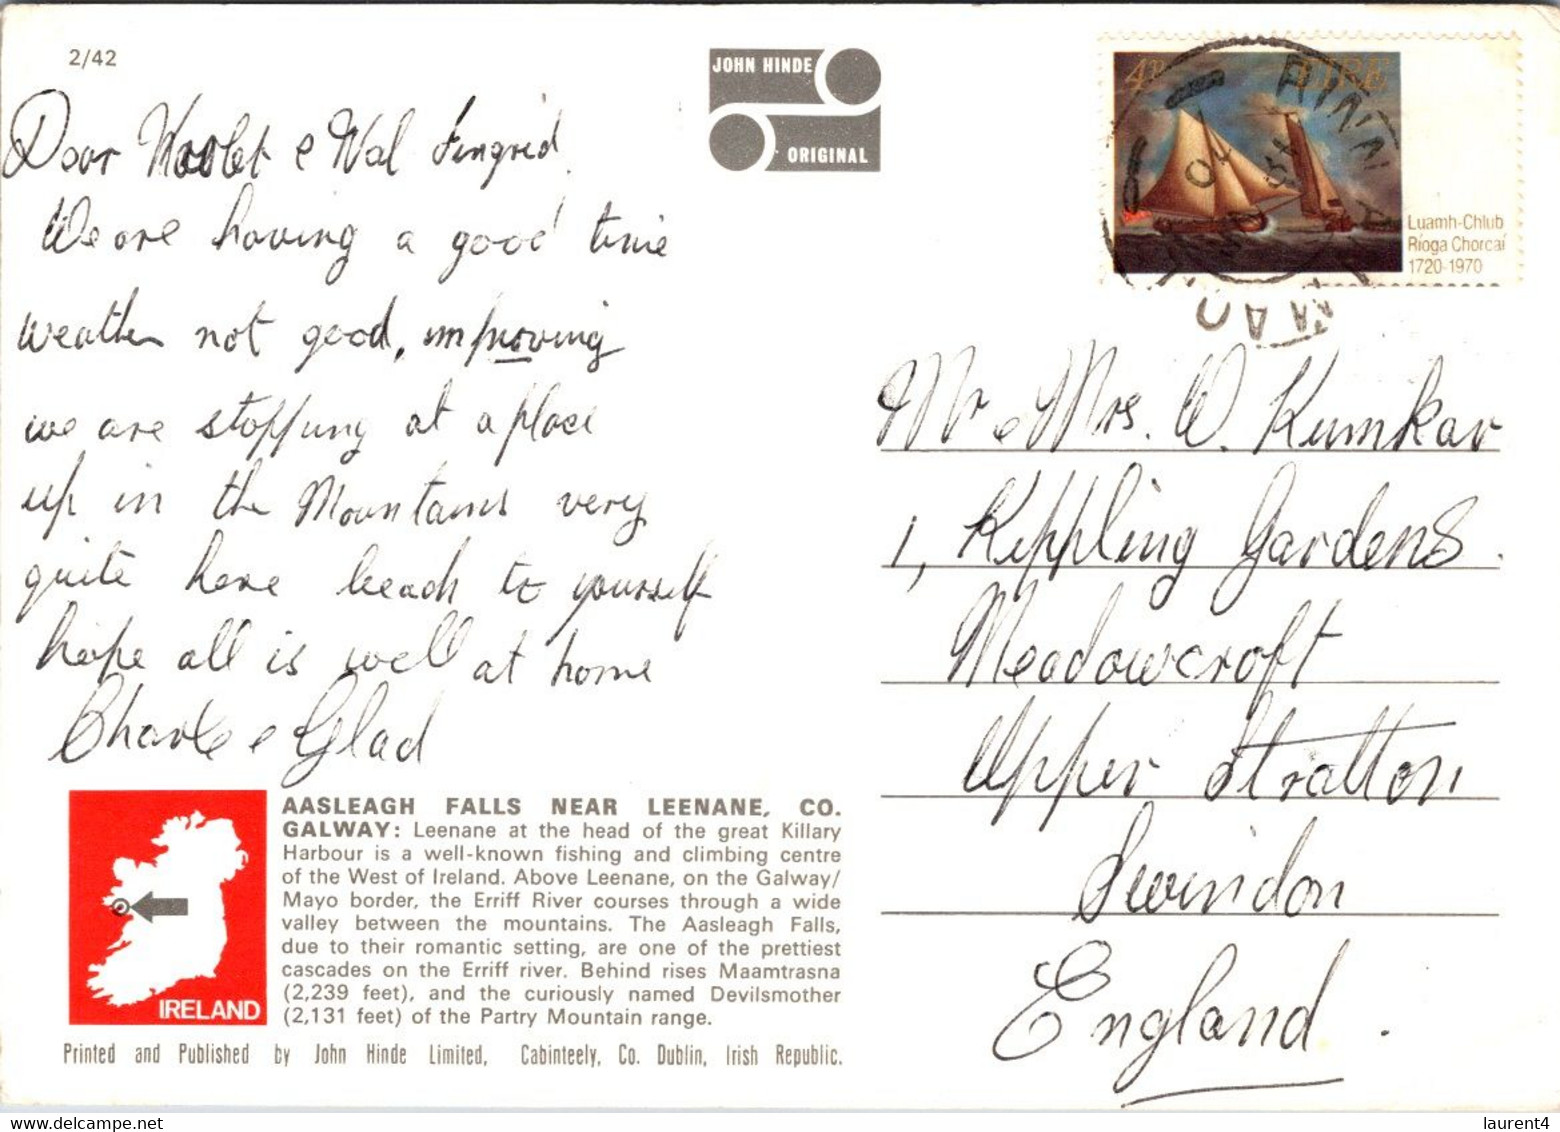 2/42
JOHN HINDE
ORIGINAL
Dear & Wal
We are having a good time
weather not good, improving
we are stopping at a place
up in the Mountains very
quite here to yourself
hope all is well at home
Charle & Glad
4P EIRE
Luamh-Chlub
Ríoga Chorcaí
1720-1970
Mr & Mrs. W. Kumkar
1, Kippling Gardens.
Meadowcroft
Upper Stratton
Swindon
England.
AASLEAGH FALLS NEAR LEENANE, CO.
GALWAY: Leenane at the head of the great Killary
Harbour is a well-known fishing and climbing centre
of the West of Ireland. Above Leenane, on the Galway/
Mayo border, the Erriff River courses through a wide
valley between the mountains. The Aasleagh Falls,
due to their romantic setting, are one of the prettiest
cascades on the Erriff river. Behind rises Maamtrasna
(2,239 feet), and the curiously named Devilsmother
(2,131 feet) of the Partry Mountain range.
IRELAND
Printed and Published by John Hinde Limited, Cabinteely, Co. Dublin, Irish Republic.
laurent4